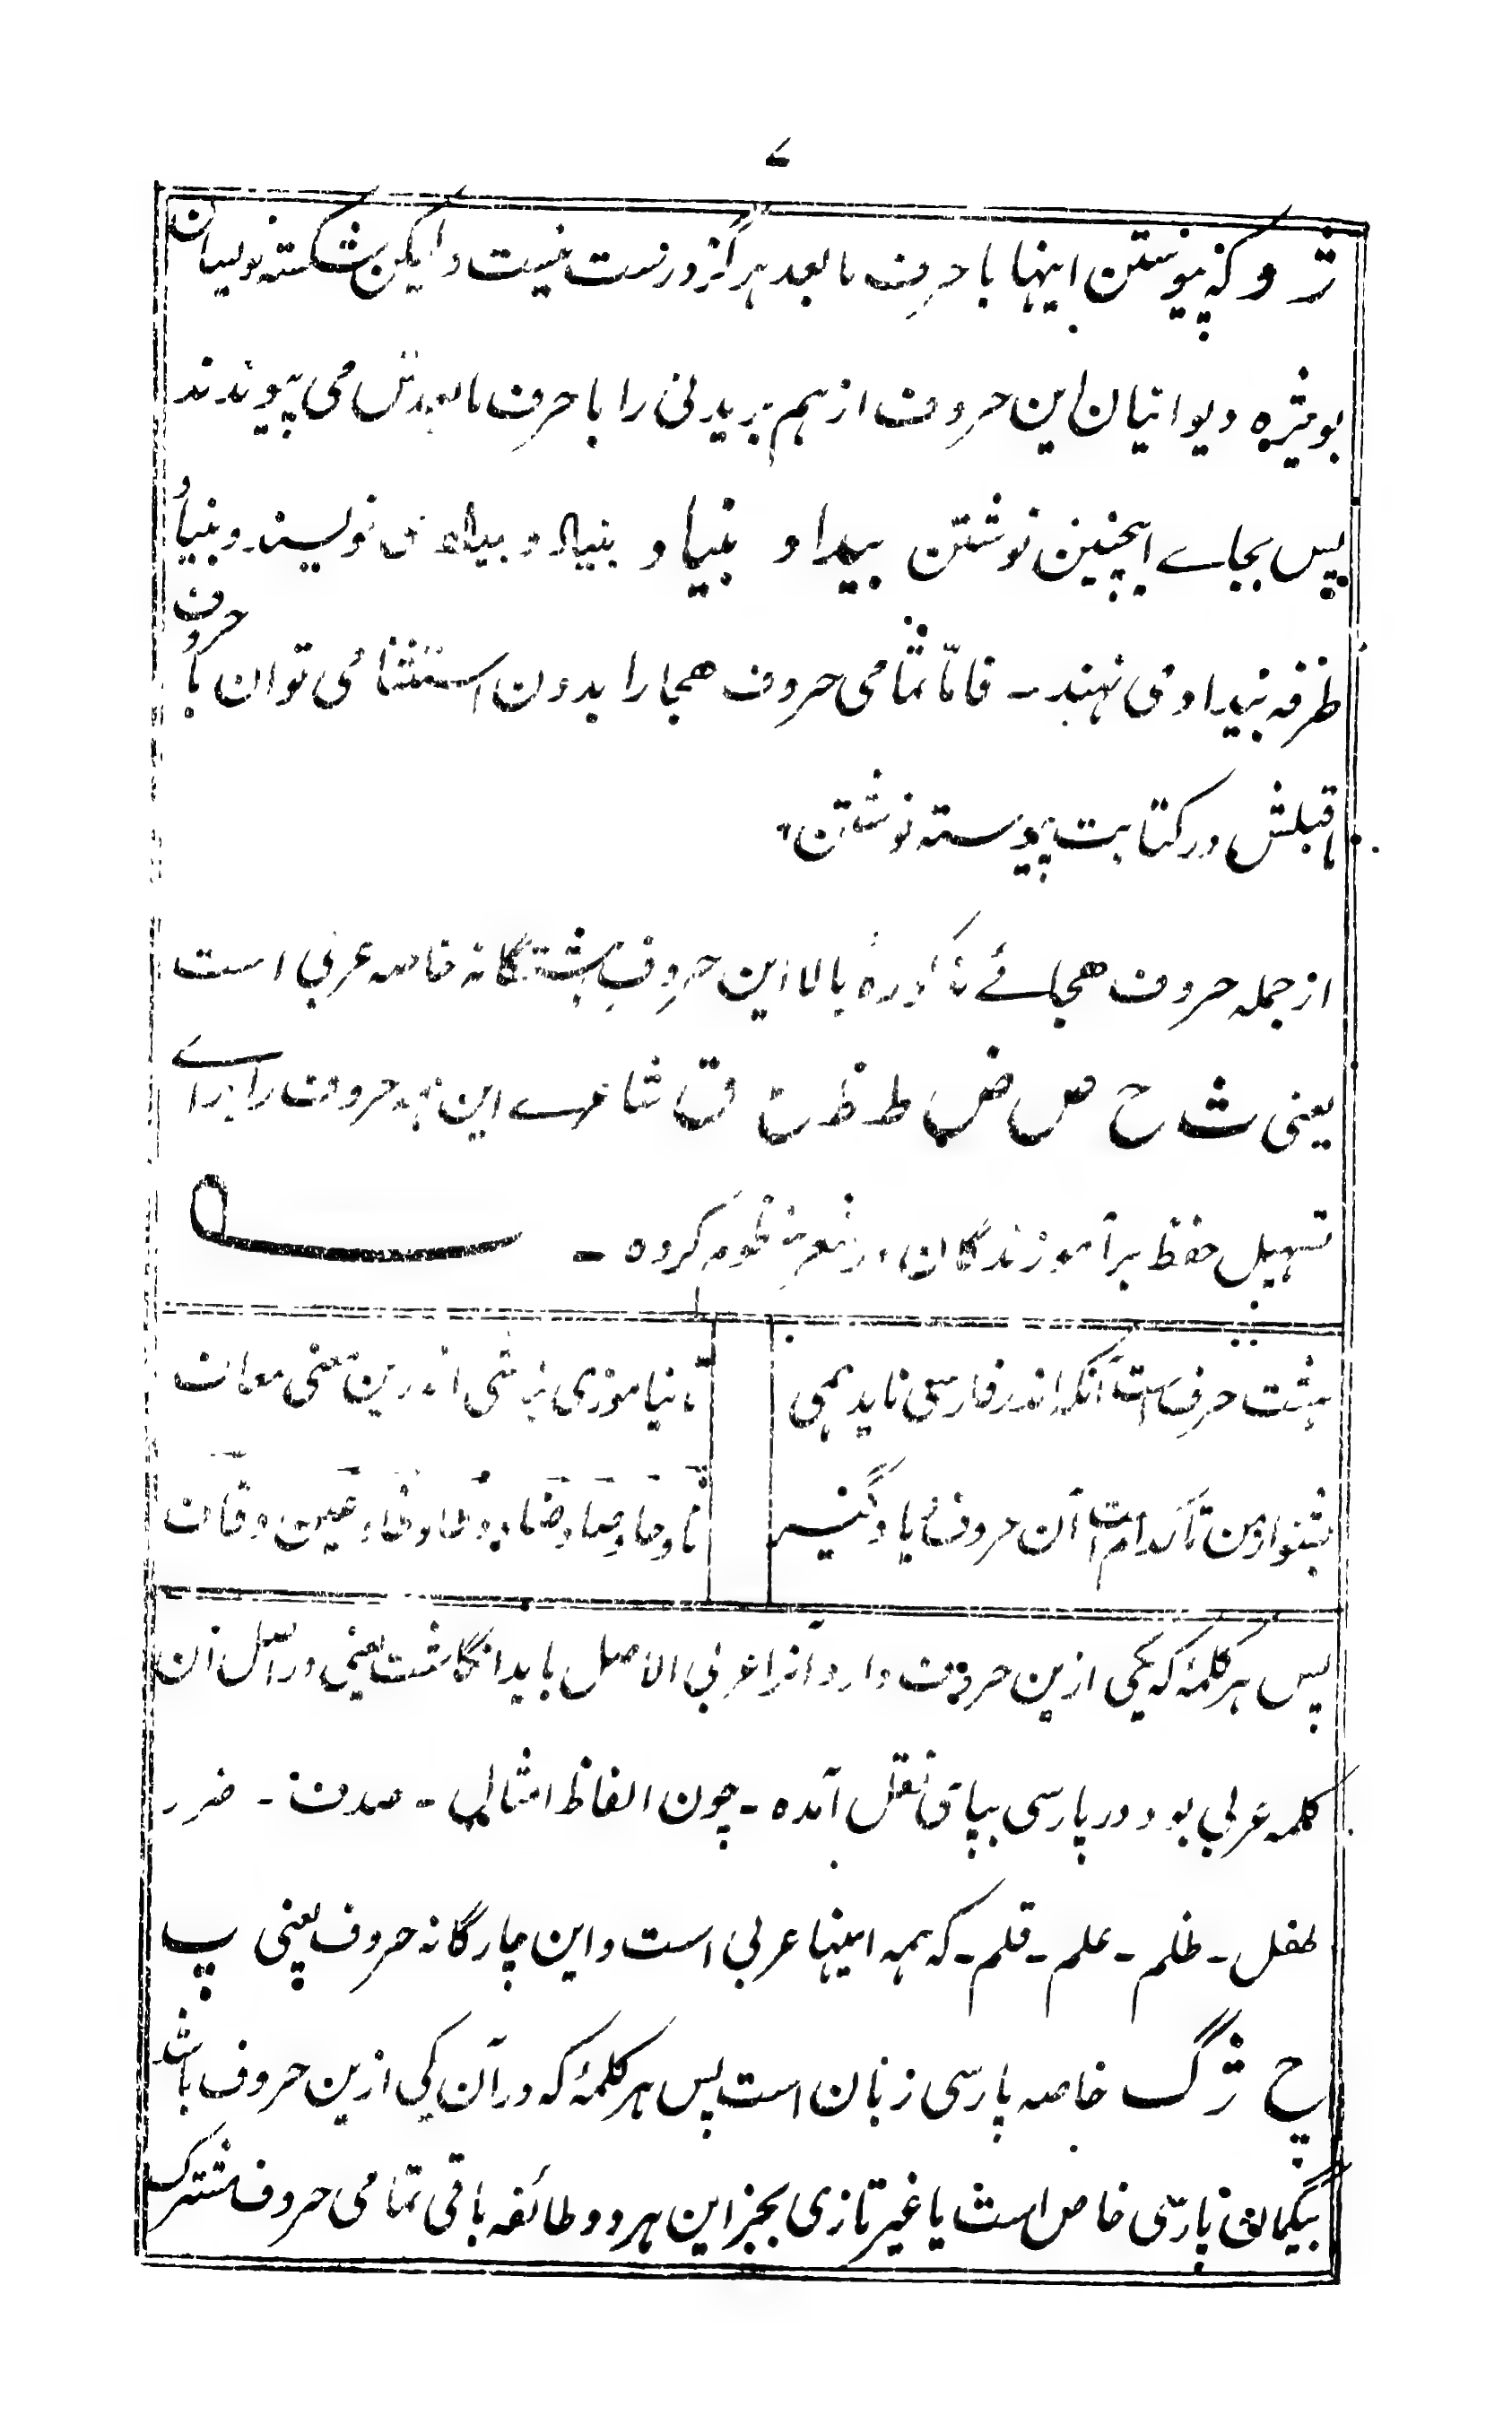 ۷
ژ و که پیوستن اینها با حرف مابعد هرگز درست نیست ولیکن شکسته نویسان
بویژه دیوانیان این حروف از هم بریدنی را با حرف مابعدش می پیوندند
پس بجاے اینچنین نوشتن بیداد و بنیاد می نویسند و بنیاد
طرفه بیداد می نهند ـ فامّا تمامی حروف هجا را بدون استثنائی توان با حروف
ماقبلش در کتابت پیوسته نوشتن
از جمله حروف هجائے مذکورهٔ بالا این حروف هشتگانه خاصه عربی است
یعنی ث ح ص ض ط ظ ع ق شاعرے این همه حروف را براے
تسهیل حفظ بر آموزندگان در شعر منظوم کرده ـ
هشت حرف است آنکه اندر فارسی ناید همی
تا نیاموزی نباشی اندرین معنی معاف
بشنو از من تا کدام است آن حروف و یاد گیر
ثا و حا و صاد و ضاد و طا و ظا و عین و قاف
پس هر کلمهٔ که یکی ازین حروف دارد آنرا عربی الاصل باید انگاشت یعنی در اصل آن
کلمه عربی بود و در پارسی بپای نقل آمده ـ چون الفاظ امثال ـ صدف ـ ضرر
طفل ـ ظلم ـ علم ـ قلم ـ که همه اینها عربی است و این چارگانه حروف یعنی پ
چ ژ گ خاصه پارسی زبان است پس هر کلمهٔ که در آن یکی ازین حروف باشد
بیگمان پارسی خاص است یا غیر تازی بجز این هر دو طائفه باقی تمامی حروف مشترک